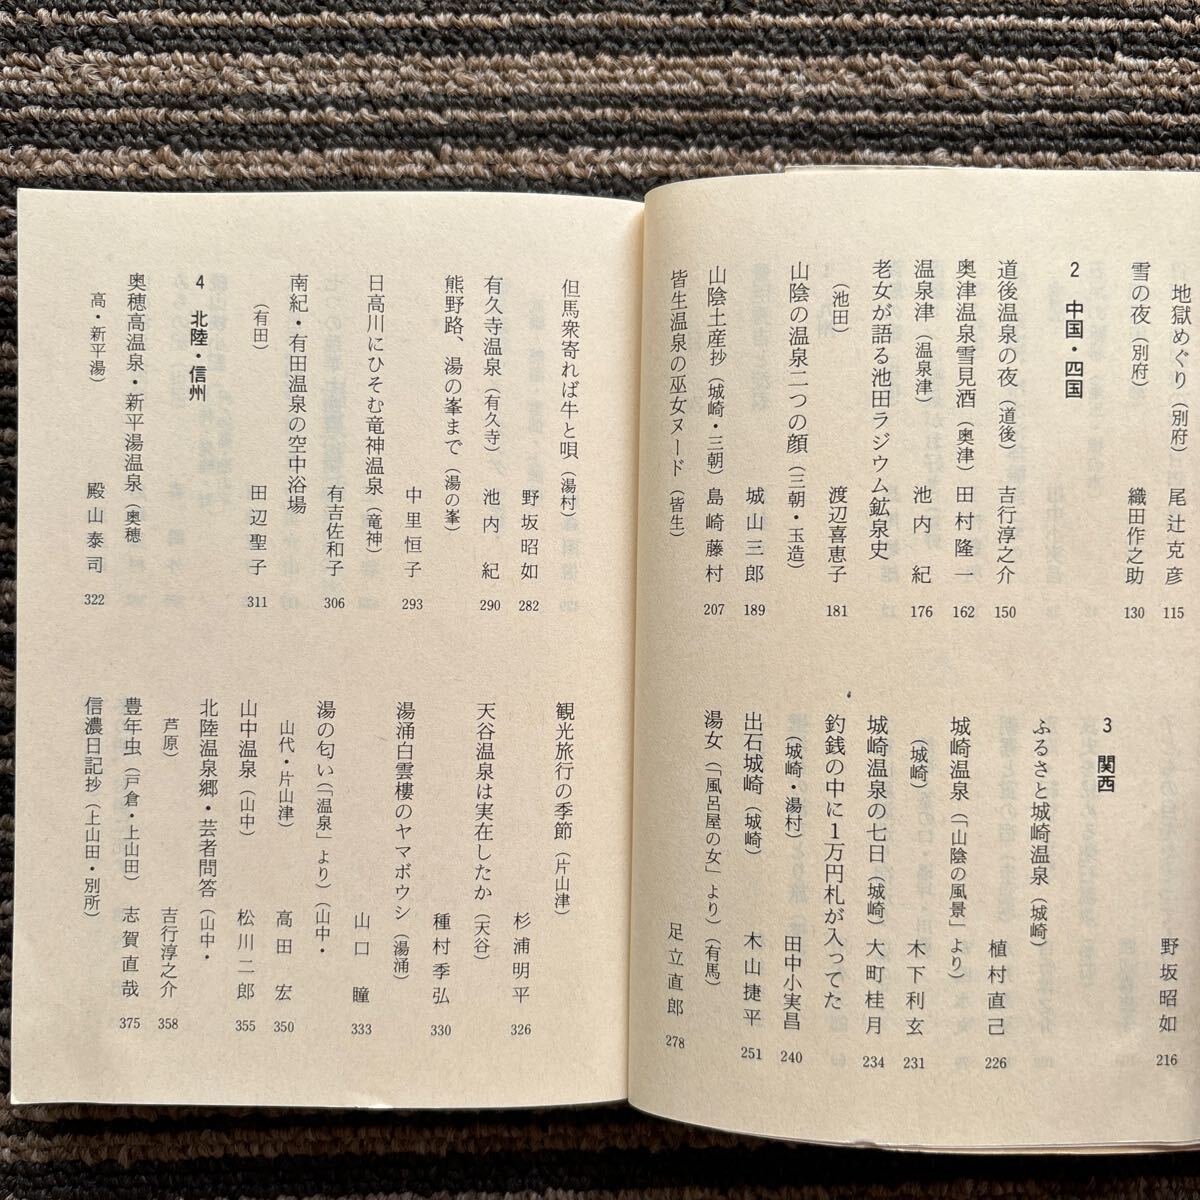 地獄めぐり（別府） 尾辻克彦 115
雪の夜（別府） 織田作之助 130
2 中国・四国
道後温泉の夜（道後） 吉行淳之介 150
奥津温泉雪見酒（奥津） 田村隆一 162
温泉津（温泉津） 池内 紀 176
老女が語る池田ラジウム鉱泉史
（池田） 渡辺喜恵子 181
山陰の温泉二つの顔（三朝・玉造）
城山三郎 189
山陰土産抄（城崎・三朝） 島崎藤村 207
皆生温泉の巫女ヌード（皆生）
野坂昭如 216
3 関西
ふるさと城崎温泉（城崎）
植村直己 226
城崎温泉（「山陰の風景」より）
（城崎） 木下利玄 231
城崎温泉の七日（城崎） 大町桂月 234
釣銭の中に1万円札が入ってた
（城崎・湯村） 田中小実昌 240
出石城崎（城崎） 木山捷平 251
湯女（「風呂屋の女」より）（有馬）
足立直郎 278
但馬衆寄れば牛と唄（湯村）
野坂昭如 282
有久寺温泉（有久寺） 池内 紀 290
熊野路、湯の峯まで（湯の峯）
中里恒子 293
日高川にひそむ竜神温泉（竜神）
有吉佐和子 306
南紀・有田温泉の空中浴場
（有田） 田辺聖子 311
4 北陸・信州
奥穂高温泉・新平湯温泉（奥穂
高・新平湯） 殿山泰司 322
観光旅行の季節（片山津）
杉浦明平 326
天谷温泉は実在したか（天谷）
種村季弘 330
湯涌白雲楼のヤマボウシ（湯涌）
山口 瞳 333
湯の匂い（「温泉」より）（山中・
山代・片山津） 高田 宏 350
山中温泉（山中） 松川二郎 355
北陸温泉郷・芸者問答（山中・
芦原） 吉行淳之介 358
豊年虫（戸倉・上山田） 志賀直哉 375
信濃日記抄（上山田・別所）